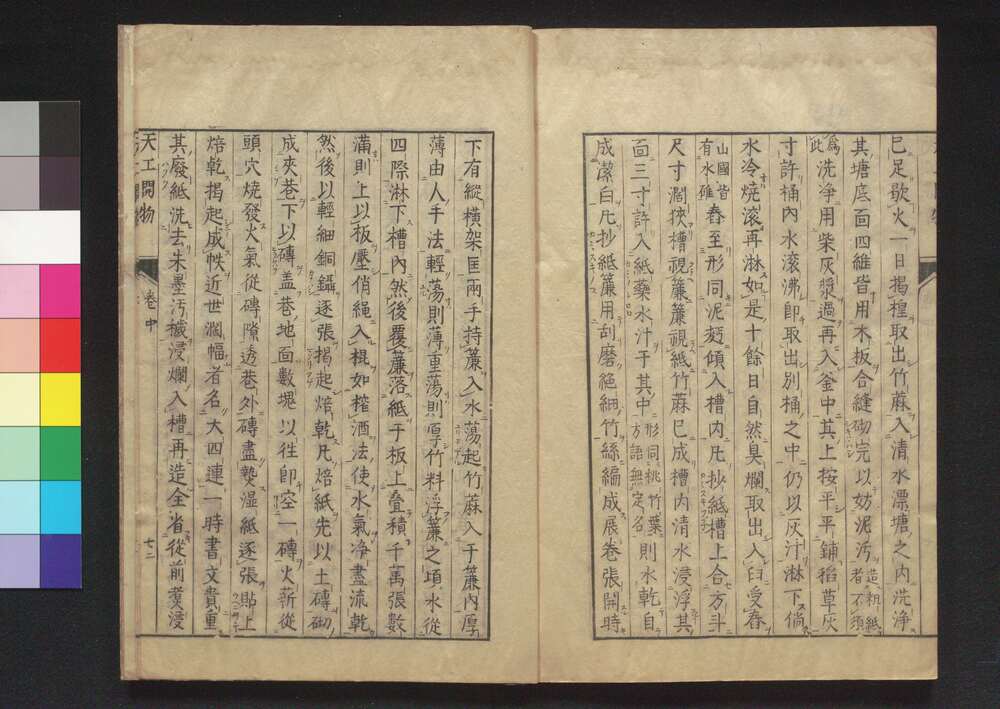 已足歇火一日揭楻取出竹蔴入清水漂塘之内洗淨
其塘底面四維皆用木板合縫砌完以妨泥汚造粗紙者不須
爲此洗淨用柴灰漿過再入釜中其上按平平鋪稻草灰
寸許桶内水滾沸即取出別桶之中仍以灰汁淋下倘
水冷燒滾再淋如是十餘日自然臭爛取出入臼受舂
山國皆有水碓舂至形同泥麪傾入槽内凡抄紙槽上合方斗
尺寸濶狹槽視簾簾視紙竹蔴已成槽内清水浸浮其
面三寸許入紙藥水汁于其中形同桃竹葉方語無定名則水乾自
成潔白凡抄紙簾用刮磨絶細竹絲編成展卷張開時
下有縱横架匡兩手持簾入水蕩起竹蔴入于簾内厚
薄由人手法輕蕩則薄重蕩則厚竹料浮簾之頃水從
四際淋下槽内然後覆簾落紙于板上叠積千萬張數
滿則上以板壓俏繩入棍如榨酒法使水氣淨盡流乾
然後以輕細銅鑷逐張揭起焙乾凡焙紙先以土磚砌
成夾巷下以磚盖巷地面數塊以往即空一磚火薪從
頭穴燒發火氣從磚隙透巷外磚盡𤍠濕紙逐張貼上
焙乾揭起成帙近世濶幅者名大四連一時書文貴重
其廢紙洗去朱墨汚穢浸爛入槽再造全省從前煮浸
天工開物
卷中
七二